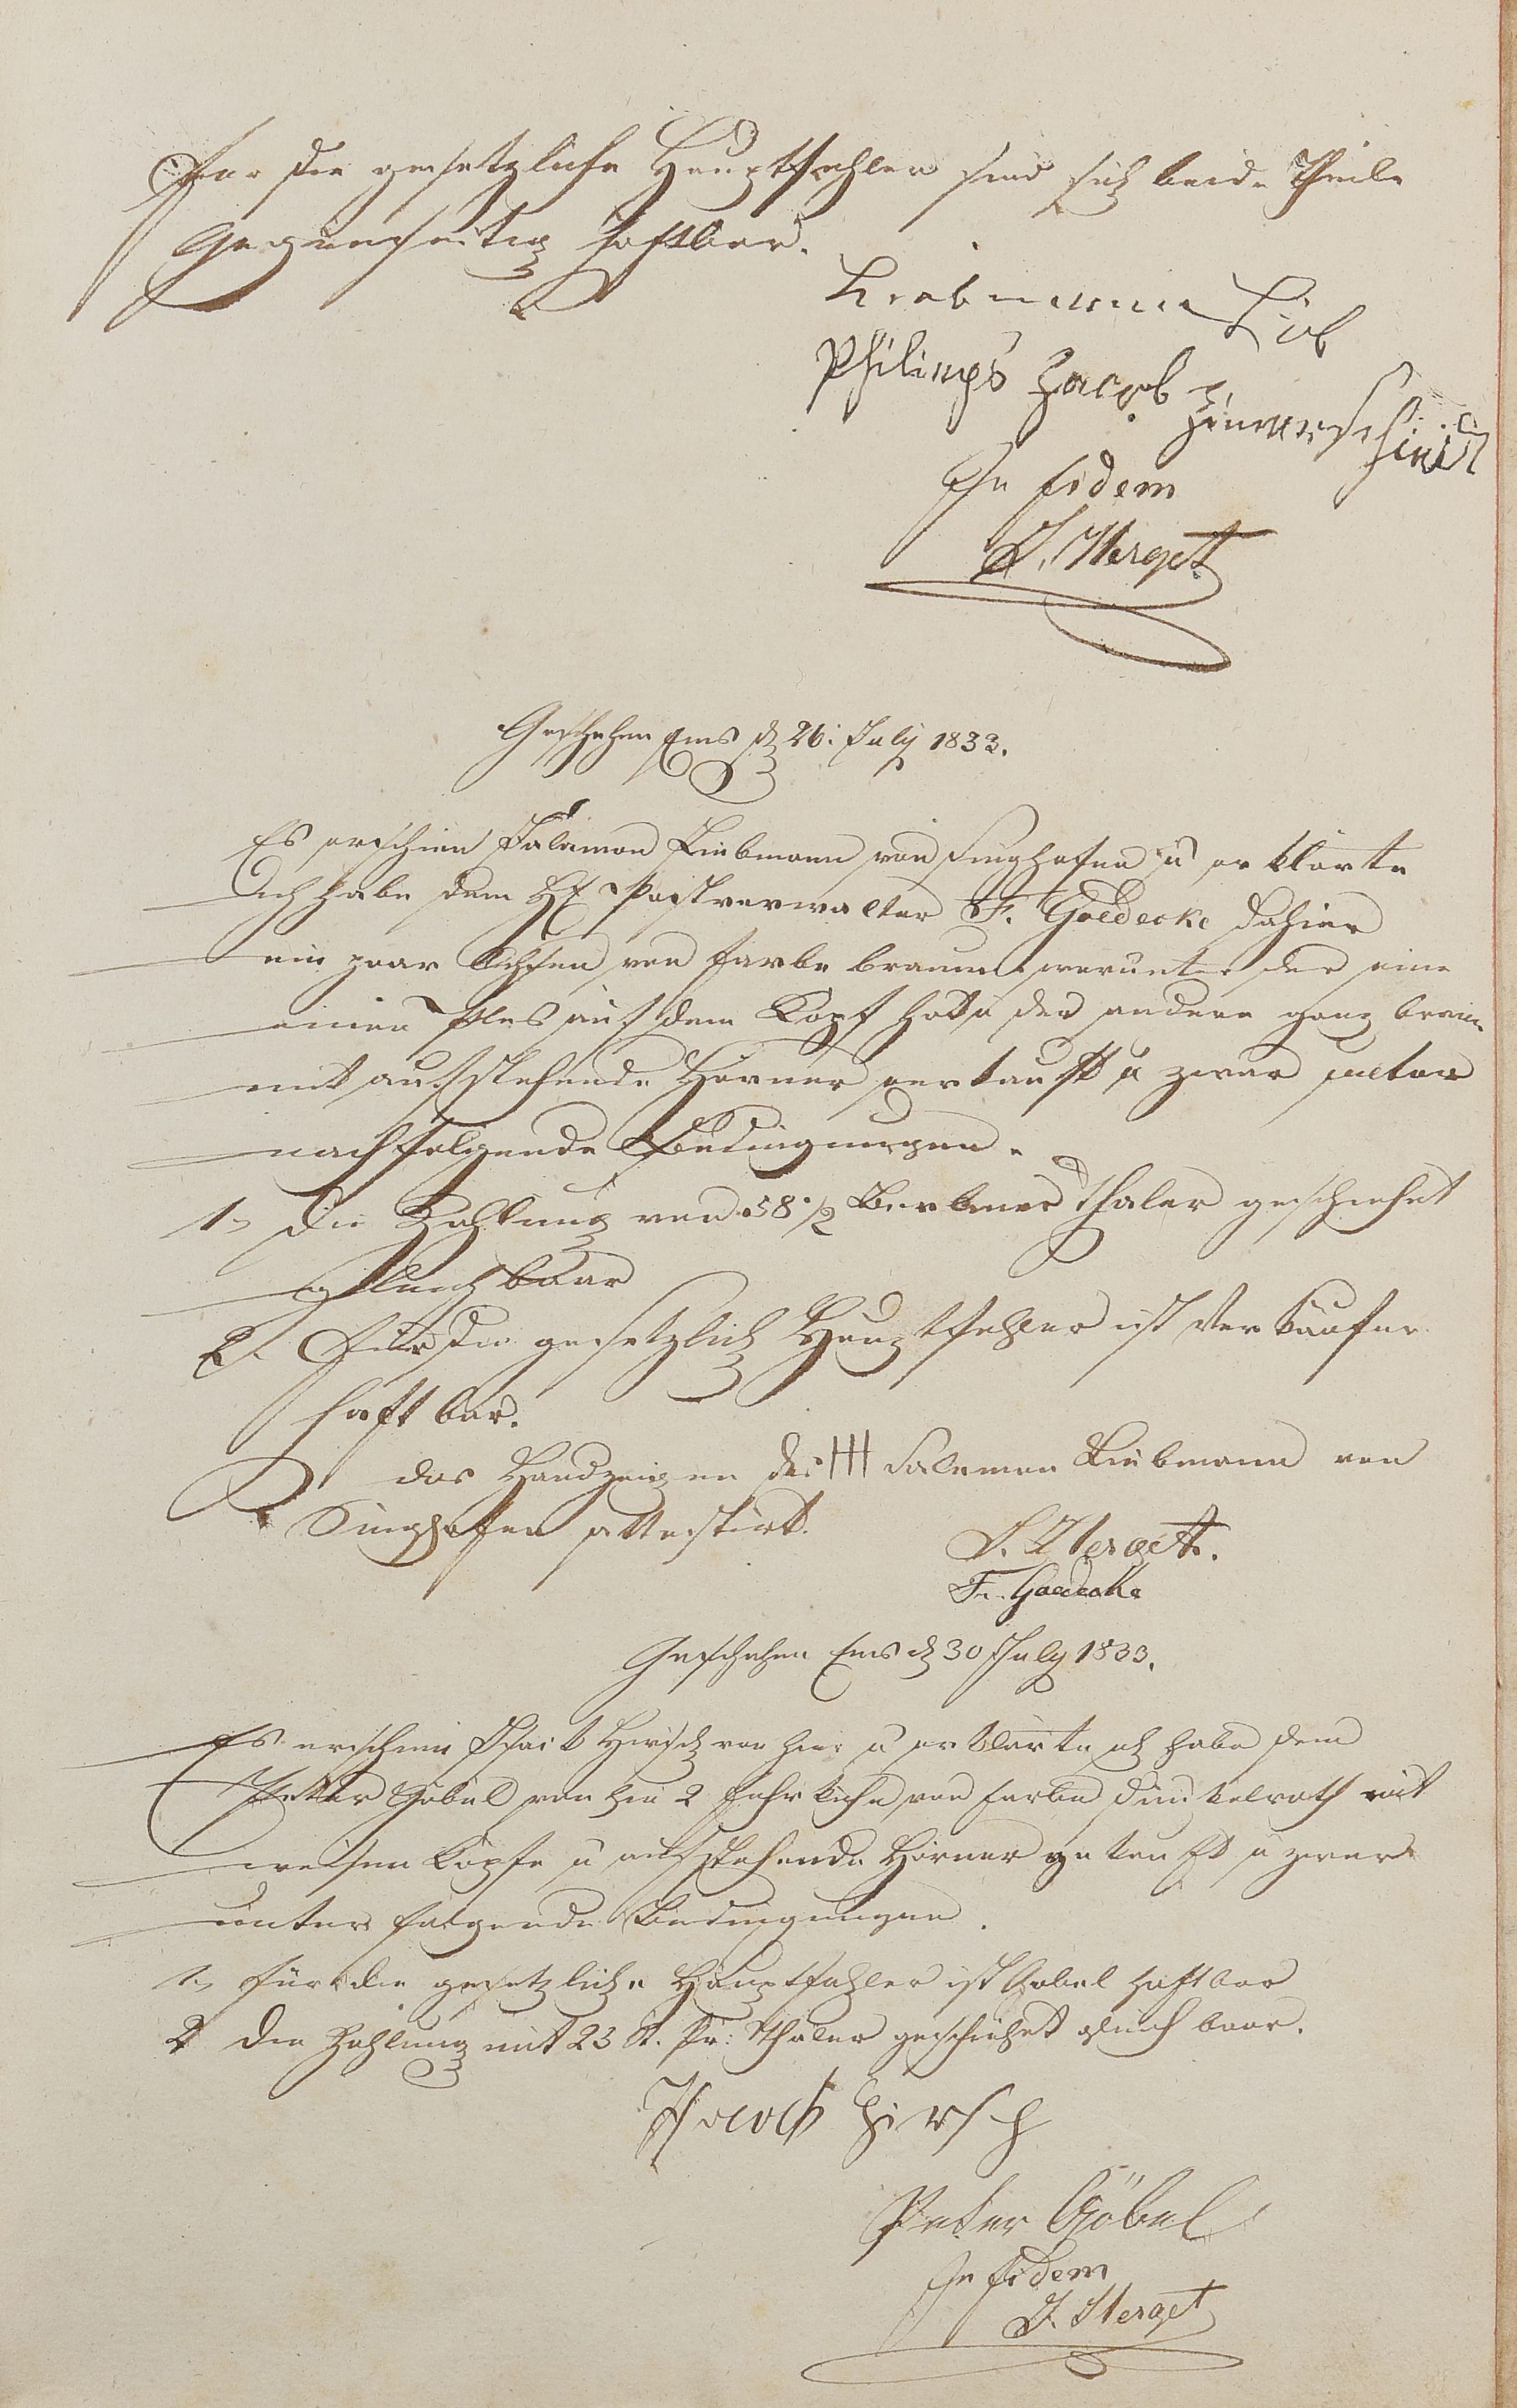 Für die gesetzliche Hauptfehler sind sich beide Theile
Gegenseitig haftbar.
Liebmann Löb
Philipps Jacob
In fidem
J. Herget
Geschehen Ems d 26: July 1833.
Es erschien Salamon Liebmann von Singhofen u erklärte
Ich habe dem H Postverwalter F. Goedecke dahier
ein paar Ochsen von farbe braun worunter der eine
einen Ples auf dem Kopf hatt der andere ganz braun
mit aufstehende Hörner verkauft u zwar unter
nachfolgende Bedingungen.
1, Die Zahlung von 58 1/2 Berliner Thaler geschiehet
gleich baar
2. Für die gesetzlich Hauptfehler ist Verkäufer
haftbar.
das Handzeigen des III Salemon Liebmann von
Singhofen attestirt.
J. Herget.
Fr. Goedecke
Geschehen Ems d 30 July 1833.
Es erschien Isaik Hirsch von hier u erklärte ich habe dem
Petter Göbel von hier 2 Fahr Kühe von farbe dunkelroth mit
weisen Köpfe u aufstehende Hörner gekauft u zwar
unter folgende Bedingungen.
1, für die gesetzliche Hauptfehler ist Göbel haftbar
2 Die Zahlung mit 23 St. Pr: Thaler geschiehet gleich baar.
Hirsch
Peter Göbel
In fidem
J. Herget